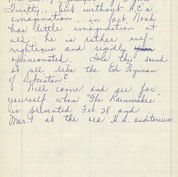 Twitty, but without H.C.'s
imagination, in fact, Noah
has little imagination at
all; he is rather self-
righteous and rigidly
opinionated. Does this sound
at all like the Ed Wyman
of Sikeston?
Well come and see for
yourself when "The Rainmaker"
is presented Feb. 28 and
Mar. 1 at the old H.S. auditorium.